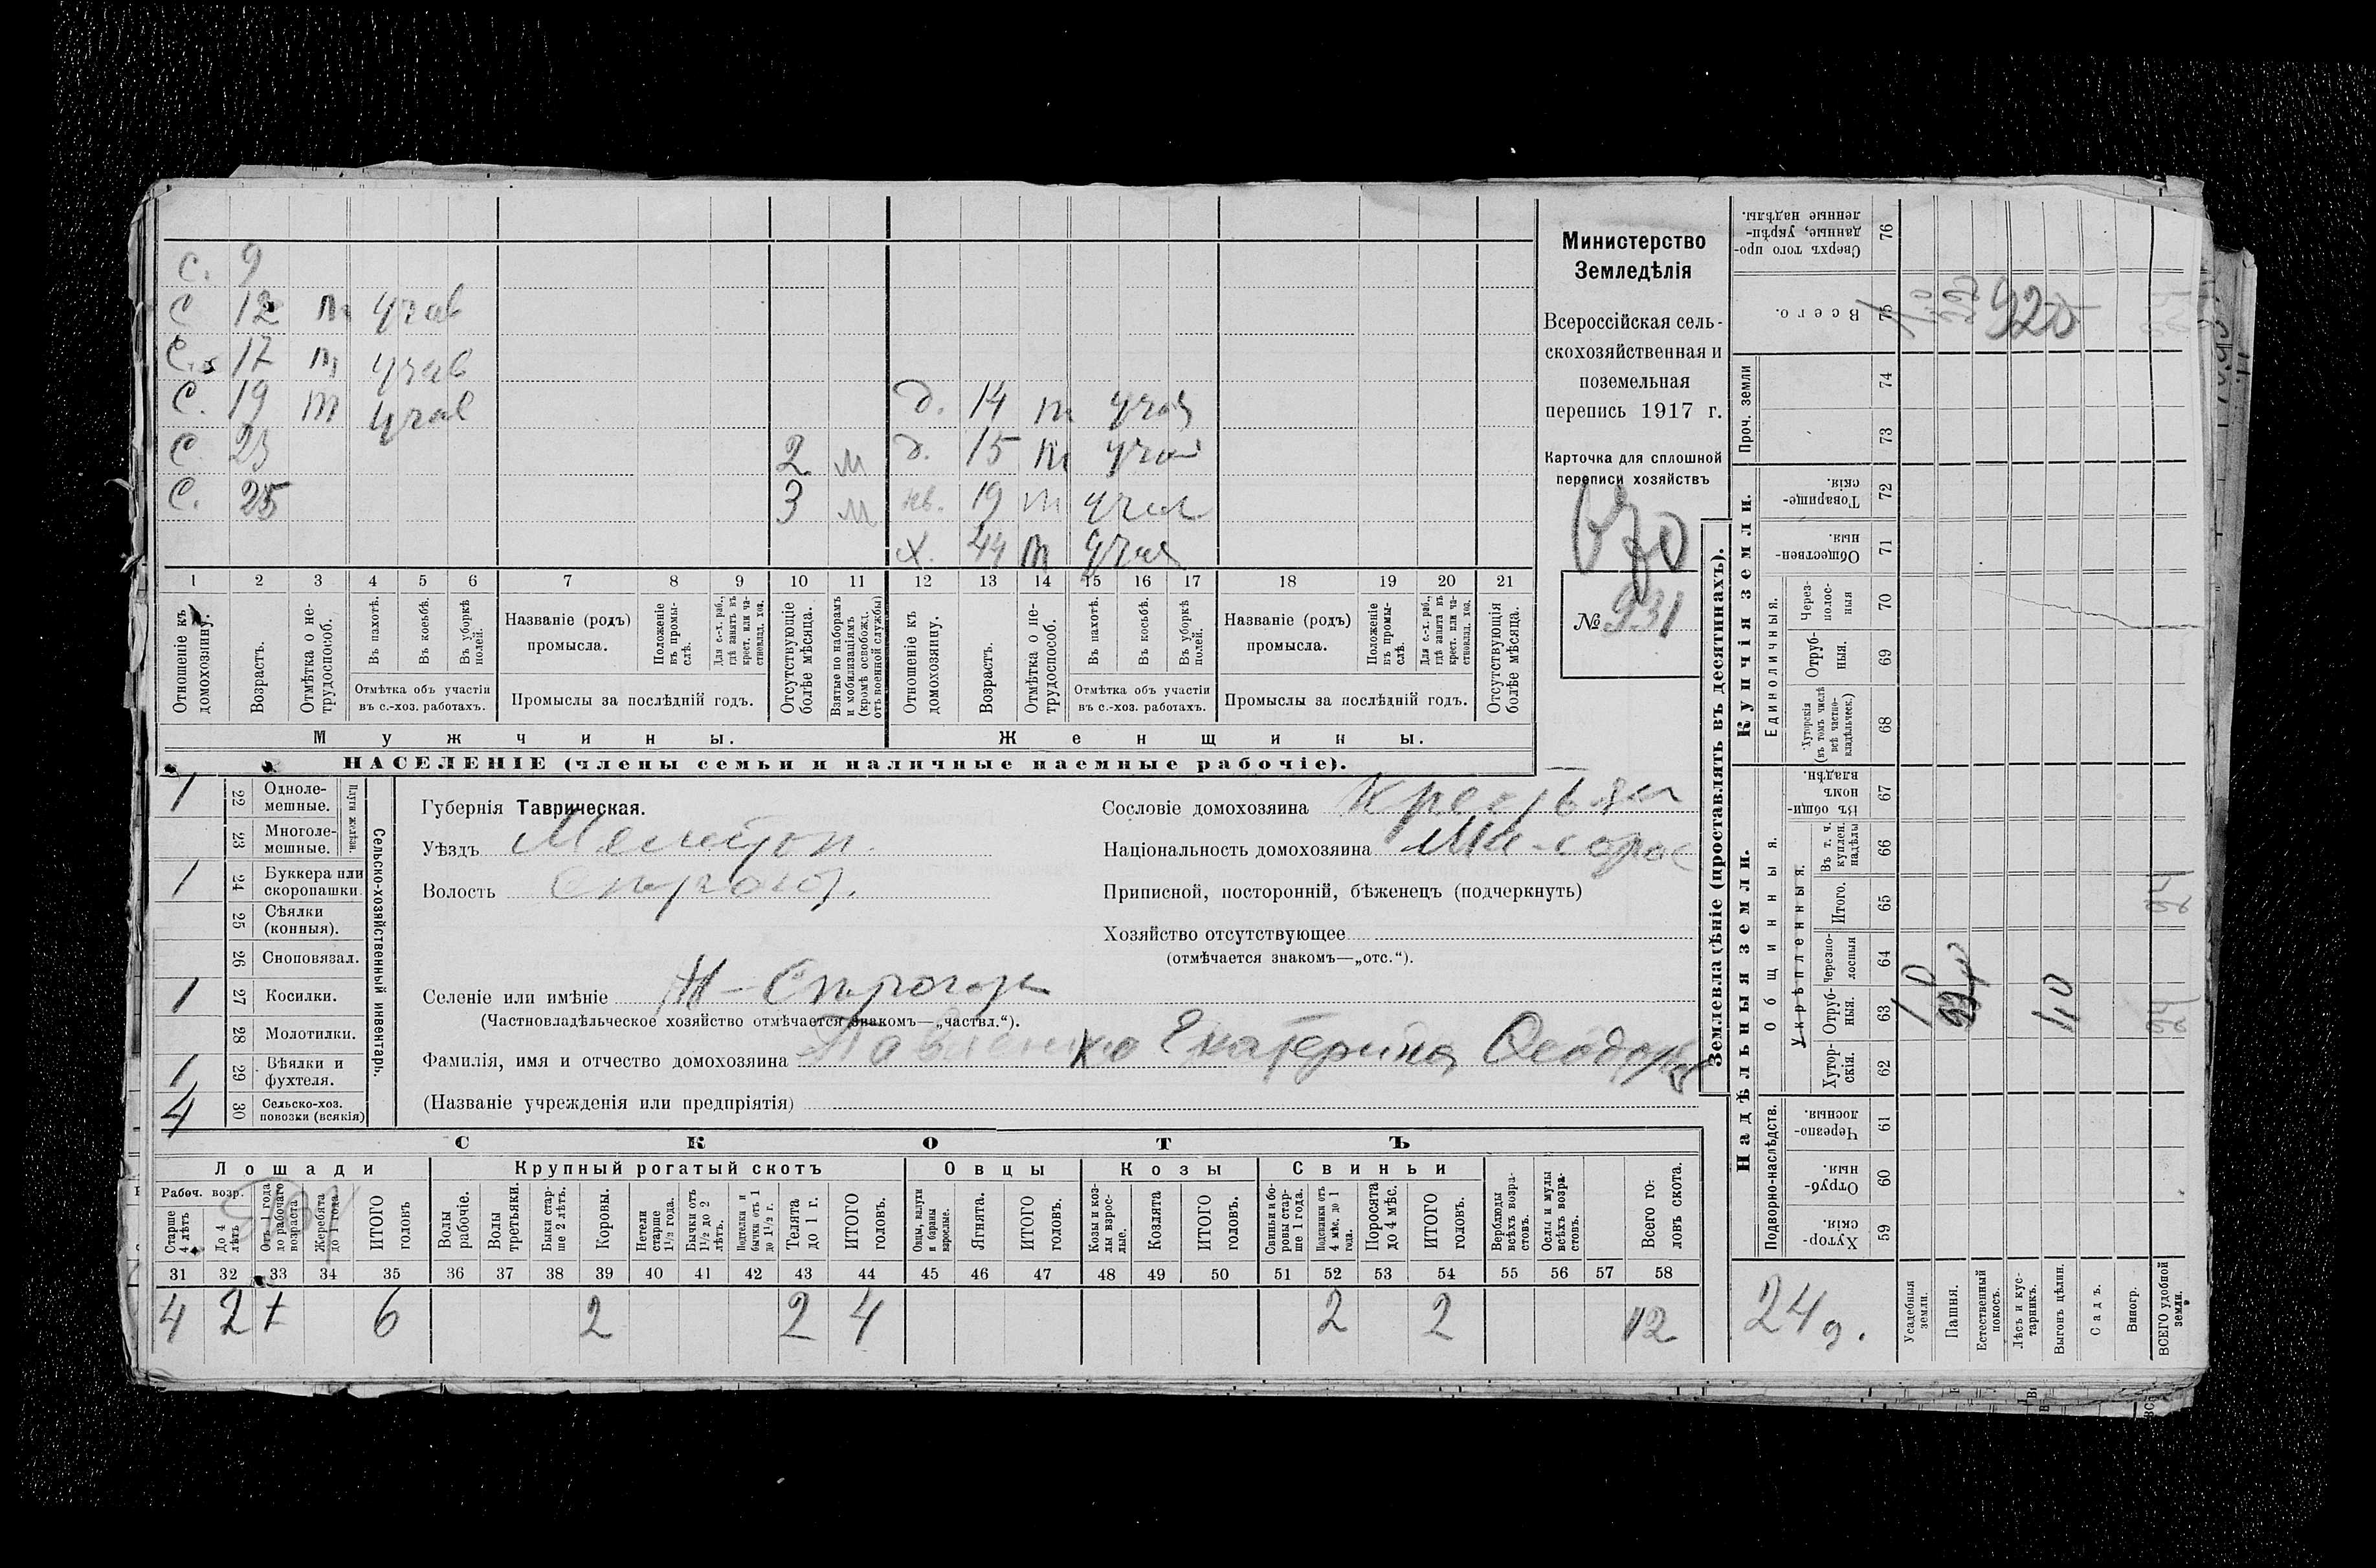 с. 9
с 12 т учав
с. 17 т учав
с. 19 т учав д. 14 т учав
с. 23 2 м д. 15 т учав
с. 25 3 м нв. 19 т учав
х. 44 т учав
1 2 3 4 5 6 7 8 9 10 11 12 13 14 15 16 17 18 19 20 21
Отношеніе къ домохозяину.
Возрастъ.
Отмѣтка о нетрудоспособ.
Въ пахотѣ.
Въ косьбѣ.
Въ уборкѣ полей.
Отмѣтка объ участіи въ с.-хоз. работахъ.
Названіе (родъ) промысла.
Положеніе въ промыслѣ.
Для с.-х. раб., гдѣ занятъ въ крест. или частновлад. хоз.
Промыслы за послѣдній годъ.
Отсутствующіе болѣе мѣсяца.
Взятые по наборамъ и мобилизаціямъ (кромѣ освобожд. отъ военной службы)
Отношеніе къ домохозяину.
Возрастъ.
Отмѣтка о нетрудоспособ.
Въ пахотѣ.
Въ косьбѣ.
Въ уборкѣ полей.
Отмѣтка объ участіи въ с.-хоз. работахъ.
Названіе (родъ) промысла.
Положеніе въ промыслѣ.
Для с.-х. раб., гдѣ занята въ крест. или частновлад. хоз.
Промыслы за послѣдній годъ.
Отсутствующія болѣе мѣсяца.
Мужчины. Женщины.
НАСЕЛЕНІЕ (члены семьи и наличные наемные рабочіе).
Министерство
Земледѣлія
Всероссійская сель-
скохозяйственная и
поземельная
перепись 1917 г.
Карточка для сплошной
переписи хозяйствъ
№ 931
1 22 Одноле-мешные.
23 Многоле-мешные.
Плуги желѣзн.
1 24 Буккера или скоропашки.
25 Сѣялки (конныя).
26 Сноповязал.
1 27 Косилки.
28 Молотилки.
1 29 Вѣялки и фухтеля.
4 30 Сельско-хоз. повозки (всякія)
Сельско-хозяйственный инвентарь.
Губернія Таврическая.
Уѣздъ Мелитоп.
Волость
Сословіе домохозяина Крестьян
Національность домохозяина Мало-рос
Приписной, посторонній, бѣженецъ (подчеркнуть)
Хозяйство отсутствующее
(отмѣчается знакомъ—„отс.“).
Селеніе или имѣніе
(Частновладѣльческое хозяйство отмѣчается знакомъ—„частвл.“).
Фамилія, имя и отчество домохозяина Павленко Екатерина Ѳеодор
(Названіе учрежденія или предпріятія)
СКОТЪ
Лошади Крупный рогатый скотъ Овцы Козы Свиньи
Рабоч. возр.
Старше 4 лѣтъ
До 4 лѣтъ
Отъ 1 года до рабочаго возраста
Жеребята до 1 года
ИТОГО головъ
Волы рабочіе.
Волы третьяки.
Быки старше 2 лѣтъ.
Коровы.
Нетели старше 1½ года.
Бычки отъ 1½ до 2 лѣтъ.
Подтелки и бычки отъ 1 до 1½ г.
Телята до 1 г.
ИТОГО головъ.
Овцы, валухи и бараны взрослые.
Ягнята.
ИТОГО головъ.
Козы и козлы взрослые.
Козлята
ИТОГО головъ.
Свиньи и боровы старше 1 года.
Подсвинки отъ 4 мѣс. до 1 года.
Поросята до 4 мѣс.
ИТОГО головъ.
Верблюды всѣхъ возрастовъ.
Ослы и мулы всѣхъ возрастовъ.
Всего головъ скота.
31 32 33 34 35 36 37 38 39 40 41 42 43 44 45 46 47 48 49 50 51 52 53 54 55 56 57 58
4 2 6 2 2 4 2 2 12
Землевладѣніе (проставлять въ десятинахъ).
Купчія земли.
Надѣльныя земли.
Сверхъ того проданные, укрѣпленные надѣлы. 76
Всего. 75
Проч. земли 74 73
Товарищескія. 72
Общественныя. 71
Единоличныя.
Черезполосныя 70
Отрубныя. 69
Хуторскія (въ томъ числѣ всѣ частновладѣльческ.) 68
Общинныя.
Въ общинномъ владѣн. 67
Укрѣпленныя.
Въ т. ч. куплен. надѣлы 66
Итого. 65
Черезполосныя 64
Отрубныя. 63
Хуторскія. 62
Подворно-наслѣдств.
Черезполосныя. 61
Отрубныя. 60
Хуторскія. 59
24 д.
Усадебныя земли.
Пашня.
Естественный покосъ.
Лѣсъ и кустарникъ.
Выгонъ цѣлин.
Садъ.
Виногр.
ВСЕГО удобной земли.